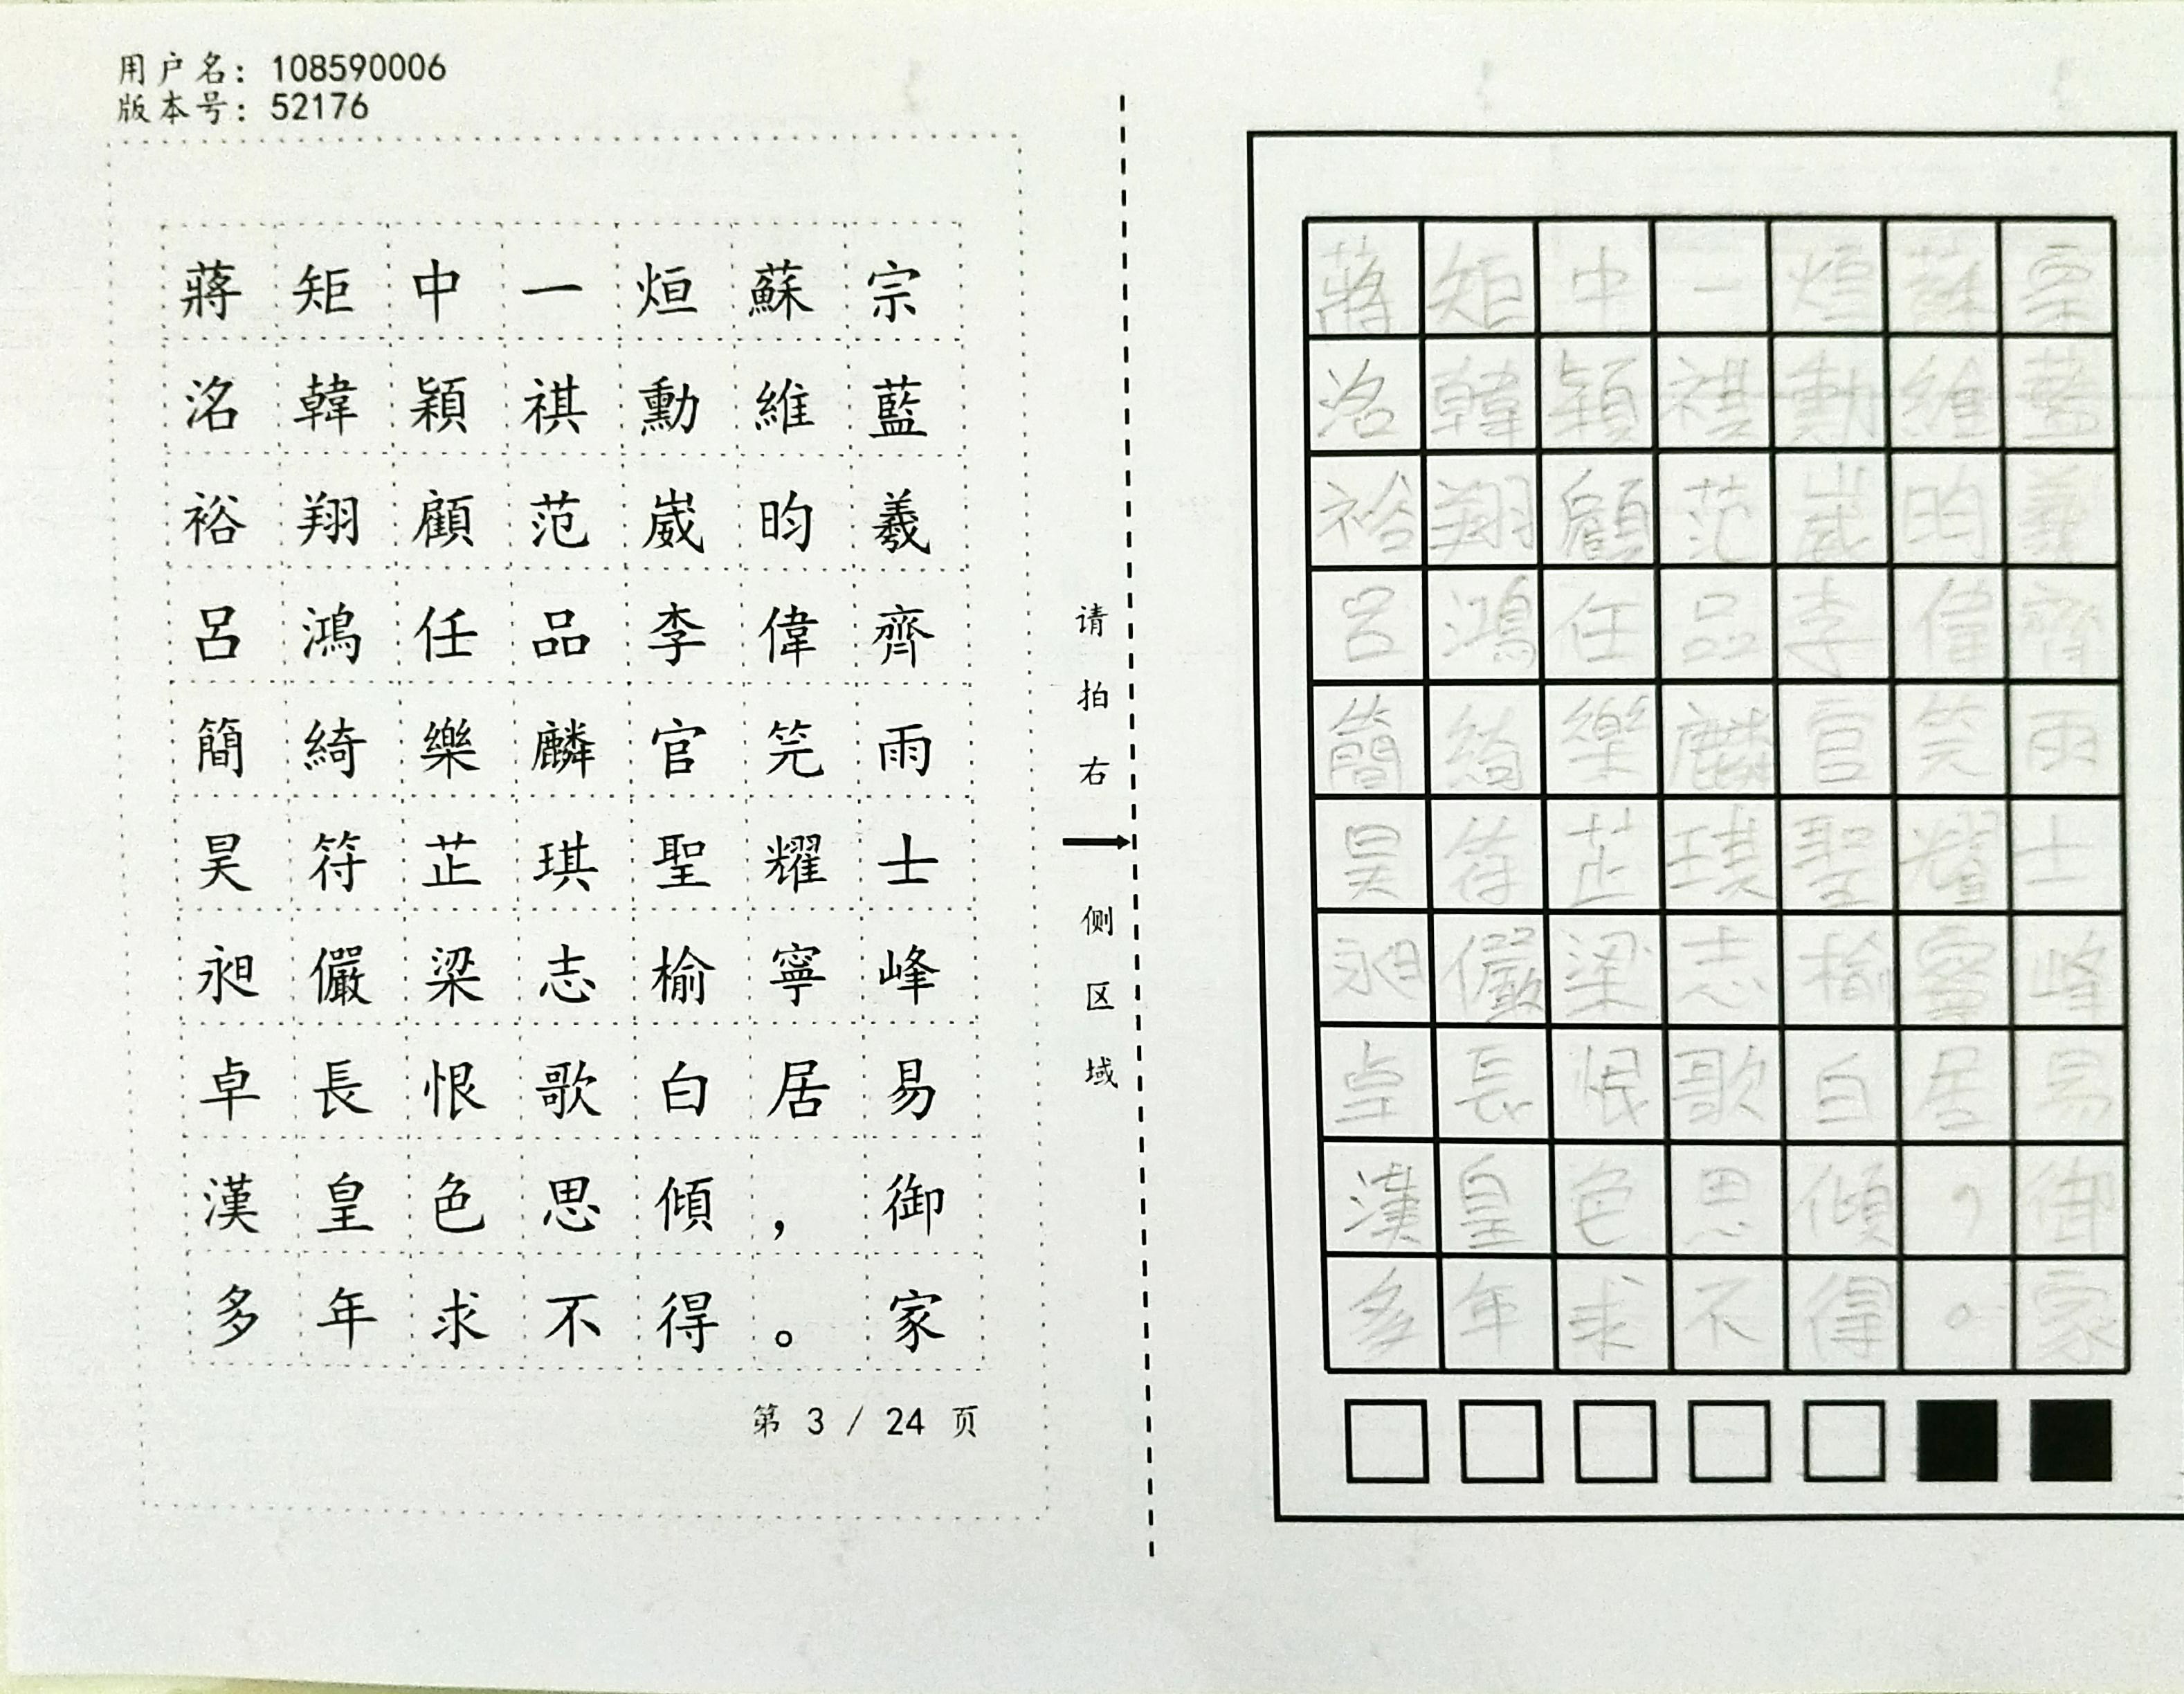 用户名: 108590006
版本号: 52176
蔣 矩 中 一 烜 蘇 宗
洺 韓 穎 祺 勳 維 藍
裕 翔 顧 范 崴 昀 羲
呂 鴻 任 品 李 偉 齊
簡 綺 樂 麟 官 筦 雨
昊 符 芷 琪 聖 耀 士
昶 儼 梁 志 榆 寧 峰
卓 長 恨 歌 白 居 易
漢 皇 色 思 傾 ， 御
多 年 求 不 得 。 家
第 3 / 24 页
请拍右侧区域
蔣 矩 中 一 烜 蘇 宗
洺 韓 穎 祺 勳 維 藍
裕 翔 顧 范 崴 昀 羲
呂 鴻 任 品 李 偉 齊
簡 綺 樂 麟 官 筦 雨
昊 符 芷 琪 聖 耀 士
昶 儼 梁 志 榆 寧 峰
卓 長 恨 歌 白 居 易
漢 皇 色 思 傾 ， 御
多 年 求 不 得 。 家